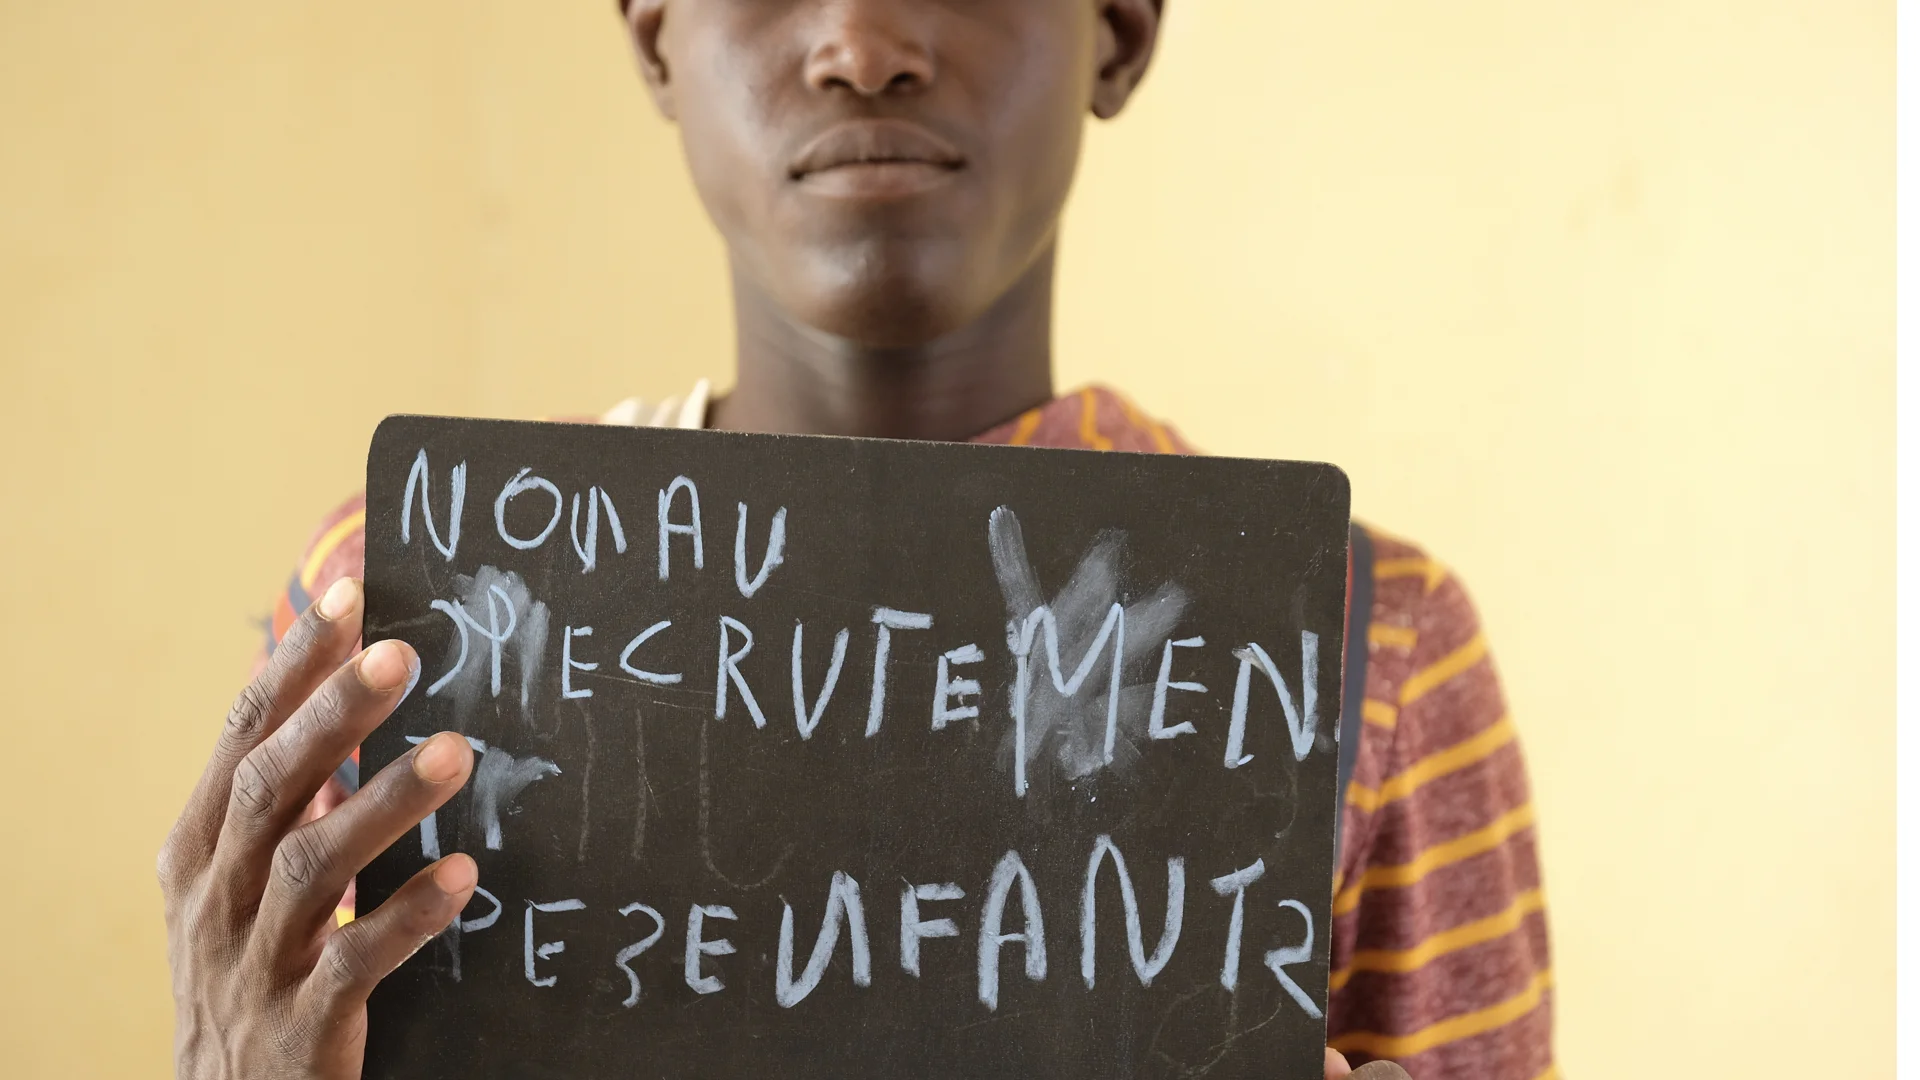 NON AU
RECRUTEMEN
T
DES ENFANTS